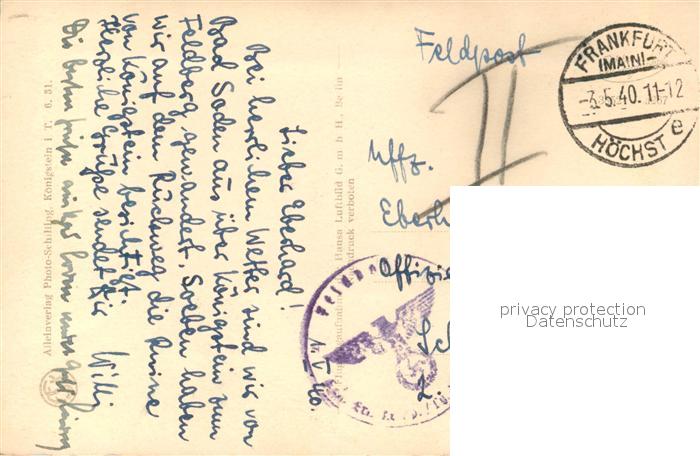 Feldpost
II
FRANKFURT
(MAIN)-
-3.5.40.11-12
HÖCHST e
Uffz.
Eberh
Offizi
1. V. 40.
Feldpo
Lieber Eberhard!
Bei herrlichem Wetter sind wir von
Bad Soden aus über Königstein zum
Feldberg gewandert. Soeben haben
wir auf dem Rückweg die Ruine
von Königstein besichtigt.
Herzliche Grüße sendet Dir
Willi
Die besten Grüße
Alleinverlag Photo-Schilling, Königstein i. T. 6. 31.
Hansa Luftbild G. m. b. H., Berlin
druck verboten
privacy protection
Datenschutz